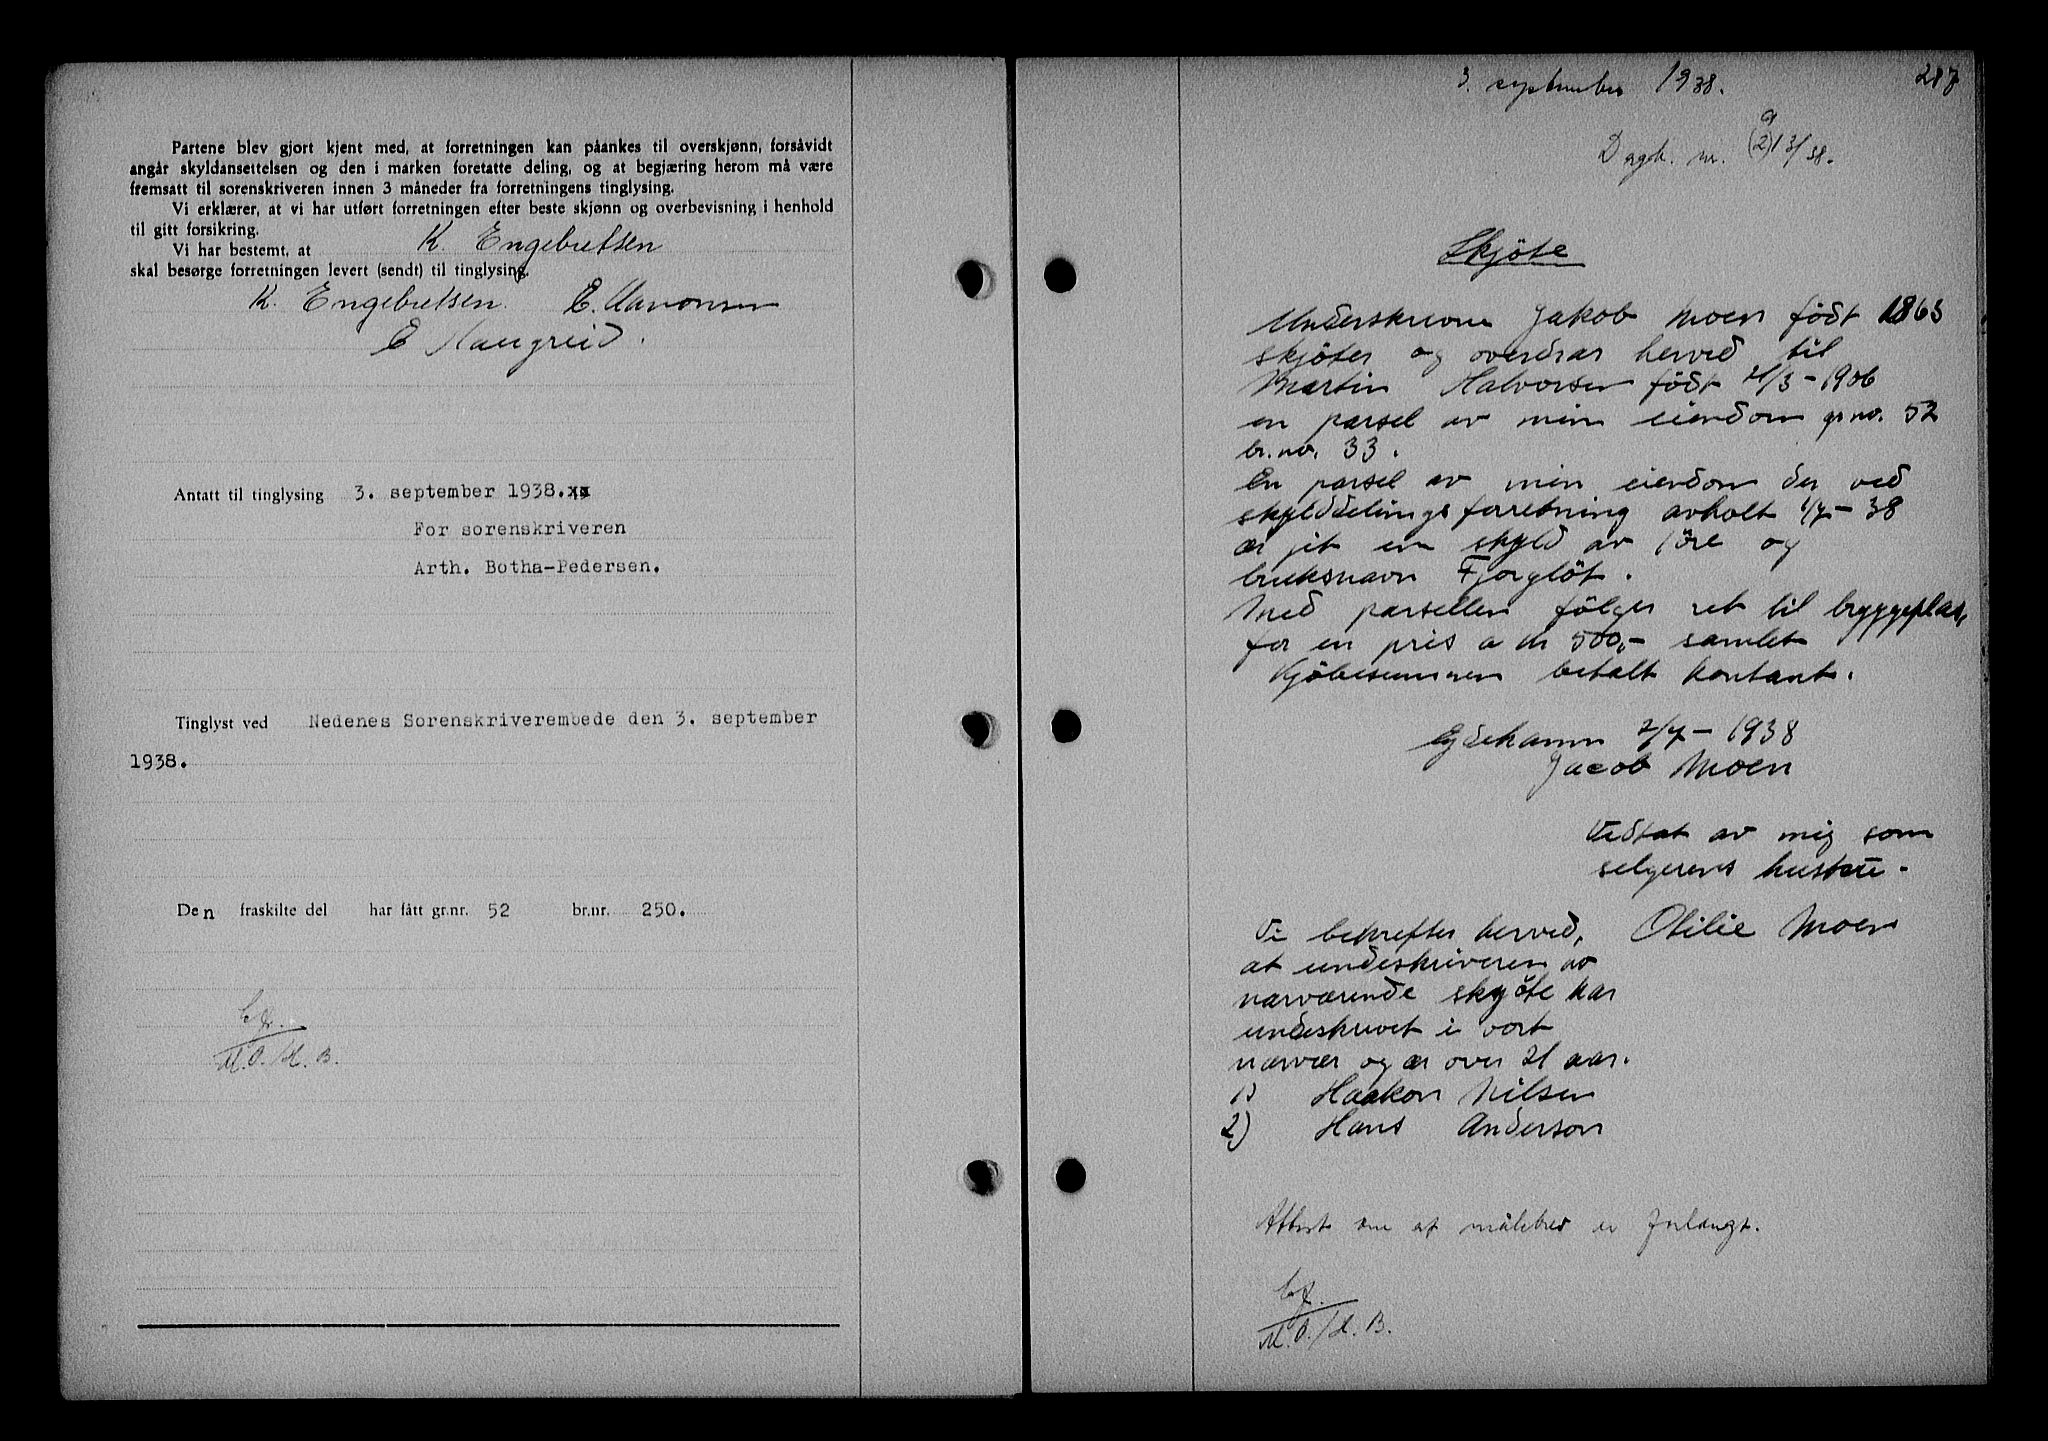 Partene blev gjort kjent med, at forretningen kan påankes til overskjønn, forsåvidt
angår skyldansettelsen og den i marken foretatte deling, og at begjæring herom må være
fremsatt til sorenskriveren innen 3 måneder fra forretningens tinglysing.
Vi erklærer, at vi har utført forretningen efter beste skjønn og overbevisning i henhold
til gitt forsikring.
Vi har bestemt, at K. Engebretsen
skal besørge forretningen levert (sendt) til tinglysing.
K. Engebretsen. E. Aanonsen
E Haugreid.
Antatt til tinglysing 3. september 1938.
For sorenskriveren
Arth. Botha-Pedersen.
Tinglyst ved Nedenes Sorenskriverembede den 3. september
1938.
Den fraskilte del har fått gr.nr. 52 br.nr. 250.
M.O./H.B.
3. september 1938. 287
Dagb. nr. 213/38.
Skjöte
Underskrevne Jakob Moen födt 1863
skjöter og overdrar herved til
Martin Halvorsen födt 21/3-1906
en parsel av min eiendom gr.no. 52
br.no. 33.
En parsel av min eiendom der ved
skylddelingsforretning avholt 1/7-38
er jit en skyld av 1 öre og
bruksnavn Fjorglöt.
Med parsellen fölger ret til bryggeplas,
for en pris a kr 500,- samlet
Kjöbesummen betalt kontant.
Eydehamn 2/7-1938
Jacob Moen
Vedtat av mig som
selgerens hustru.
Otilie Moen
Vi bekrefter herved,
at undeskriveren av
nærværende skjöte har
undeskrevet i vort
nærvær og er over 21 aar.
1) Haakon Nilsen
2) Hans Anderson
Attest om at målebrev er forlangt.
M.O./H.B.